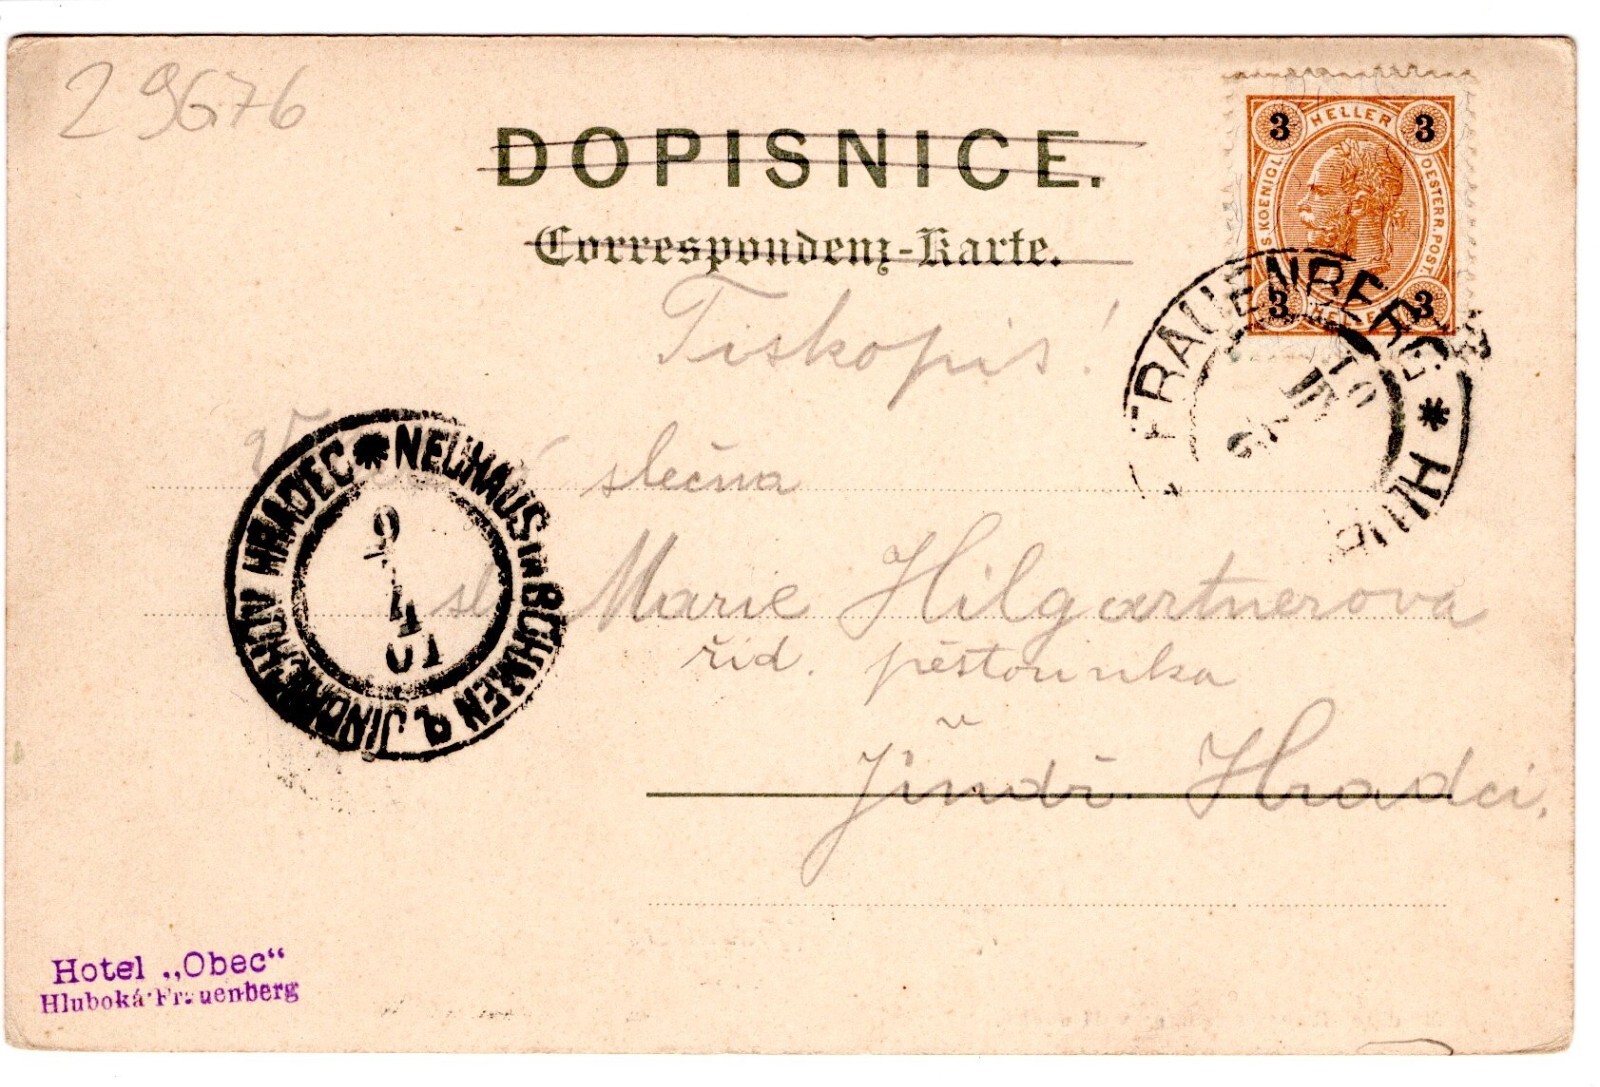 29676
DOPISNICE.
Correspondenz-Karte.
3 HELLER 3
KOENIGL. OESTERR. POST.
3 3
FRAUENBERG * HLUB
Tiskopis!
slečna
sl. Marie Hilgartnerova
říd. pěstounka
v
Jindř. Hradci.
NEUHAUS in BÖHMEN
JINDŘICHŮV HRADEC
9
4
01
Hotel „Obec“
Hluboká-Frauenberg